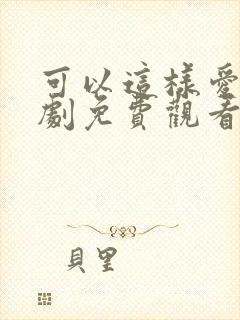 可以這樣愛
劇免費觀看
貝里